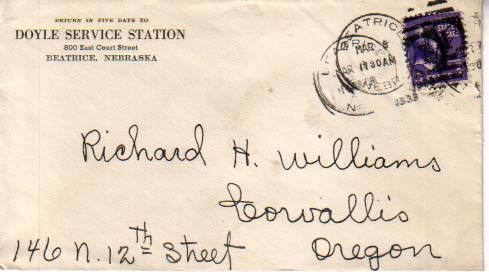 RETURN IN FIVE DAYS TO
DOYLE SERVICE STATION
800 East Court Street
BEATRICE, NEBRASKA
BEATRICE
MAR 8
11 30 AM
NEBR
1939
Richard H. Williams
Corvallis
146 N. 12th Street
Oregon